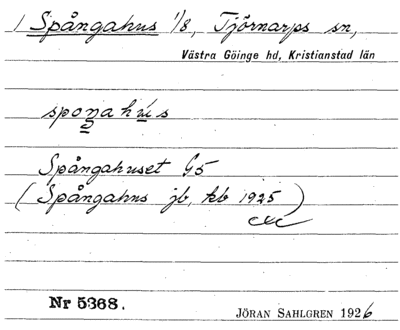 1 Spångahus 1/8, Tjörnarps sn,
Västra Göinge hd, Kristianstad län
Spångahuset G5
(Spångahus jb, kb 1925)
Nr 5368.
JÖRAN SAHLGREN 1926